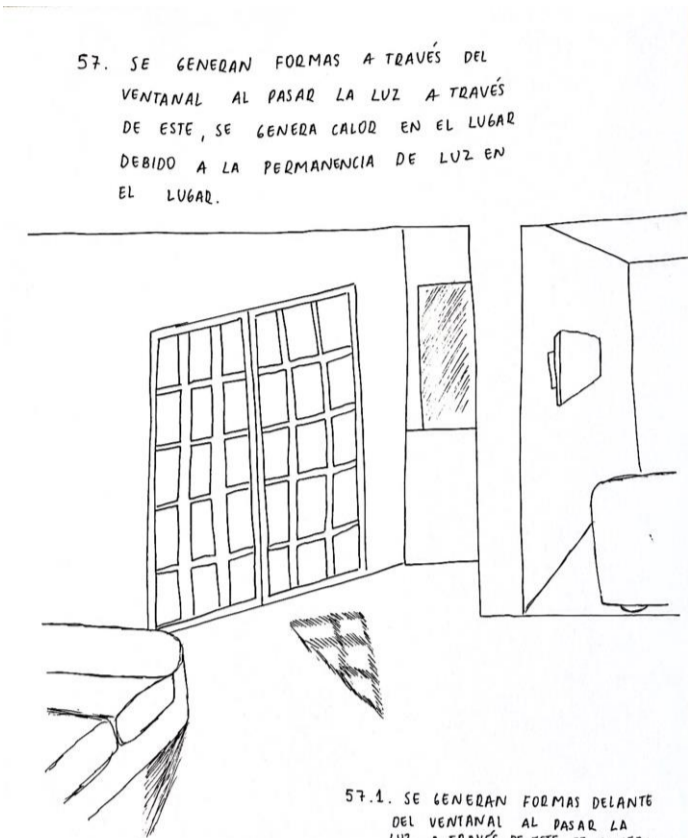 57. SE GENERAN FORMAS A TRAVÉS DEL
VENTANAL AL PASAR LA LUZ A TRAVÉS
DE ESTE, SE GENERA CALOR EN EL LUGAR
DEBIDO A LA PERMANENCIA DE LUZ EN
EL LUGAR.
57.1. SE GENERAN FORMAS DELANTE
DEL VENTANAL AL PASAR LA
LUZ A TRAVÉS DE ESTE